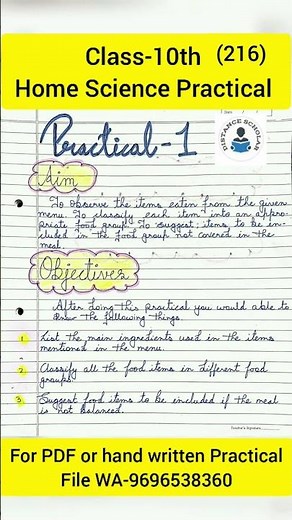 Class-10th (216)
Home Science Practical
DISTANCE SCHOLAR
Practical-1
Aim
To observe the items eaten from the given
menu. To classify each item into an appro-
priate food group. To suggest items to be in-
cluded in the food group not covered in the
meal.
Objectives
After doing this practical you would able to
the following things.
1. List the main ingredients used in the items
mentioned in the menu.
2. Classify all the food items in different food
groups.
3. Suggest food items to be included if the meal
is not balanced.
Teacher's Signature
For PDF or hand written Practical
File WA-9696538360